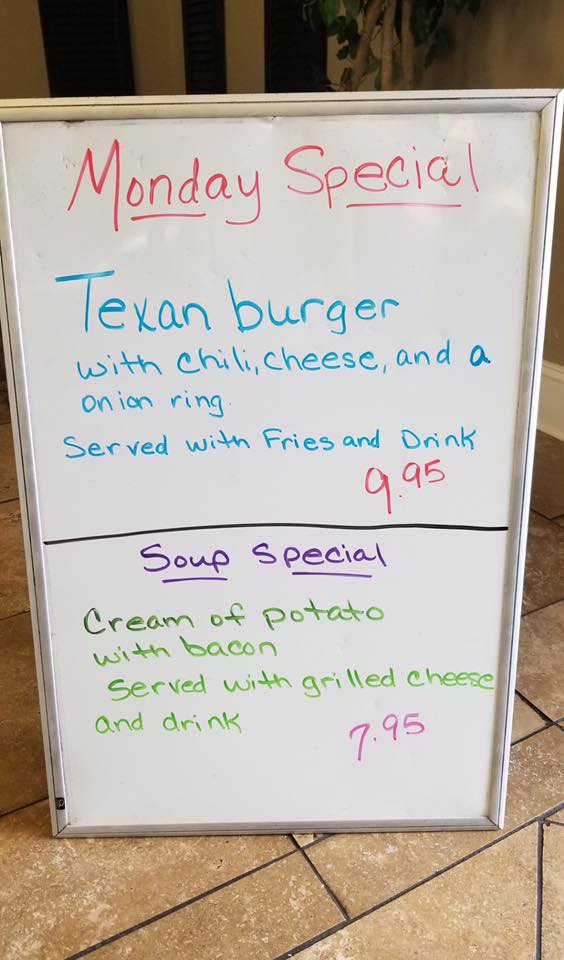 Monday Special
Texan burger
with chili, cheese, and a
onion ring.
Served with Fries and Drink
9.95
Soup Special
Cream of potato
with bacon
Served with grilled cheese
and drink
7.95